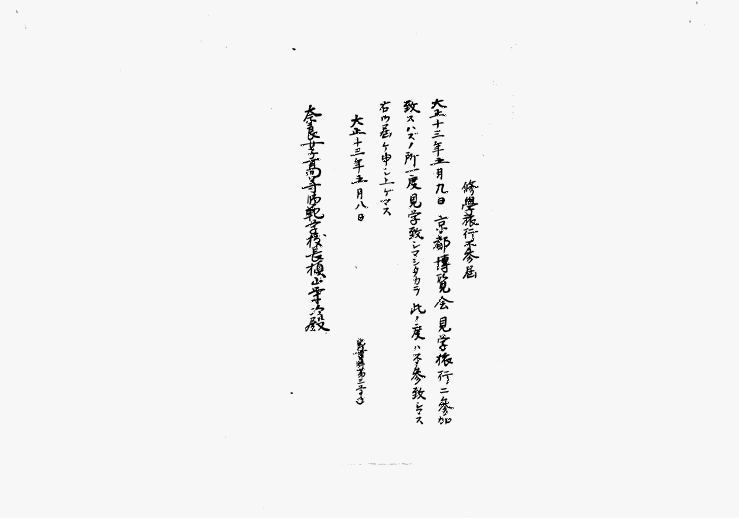 修學旅行不參届
大正十三年五月九日 京都博覧会見学旅行ニ參加
致スハズノ所一度見学致シマシタカラ此ノ度ハ不參致シマス
右御届ケ申シ上ゲマス
大正十三年五月八日
奈良女子高等師範学校長槇山栄次殿